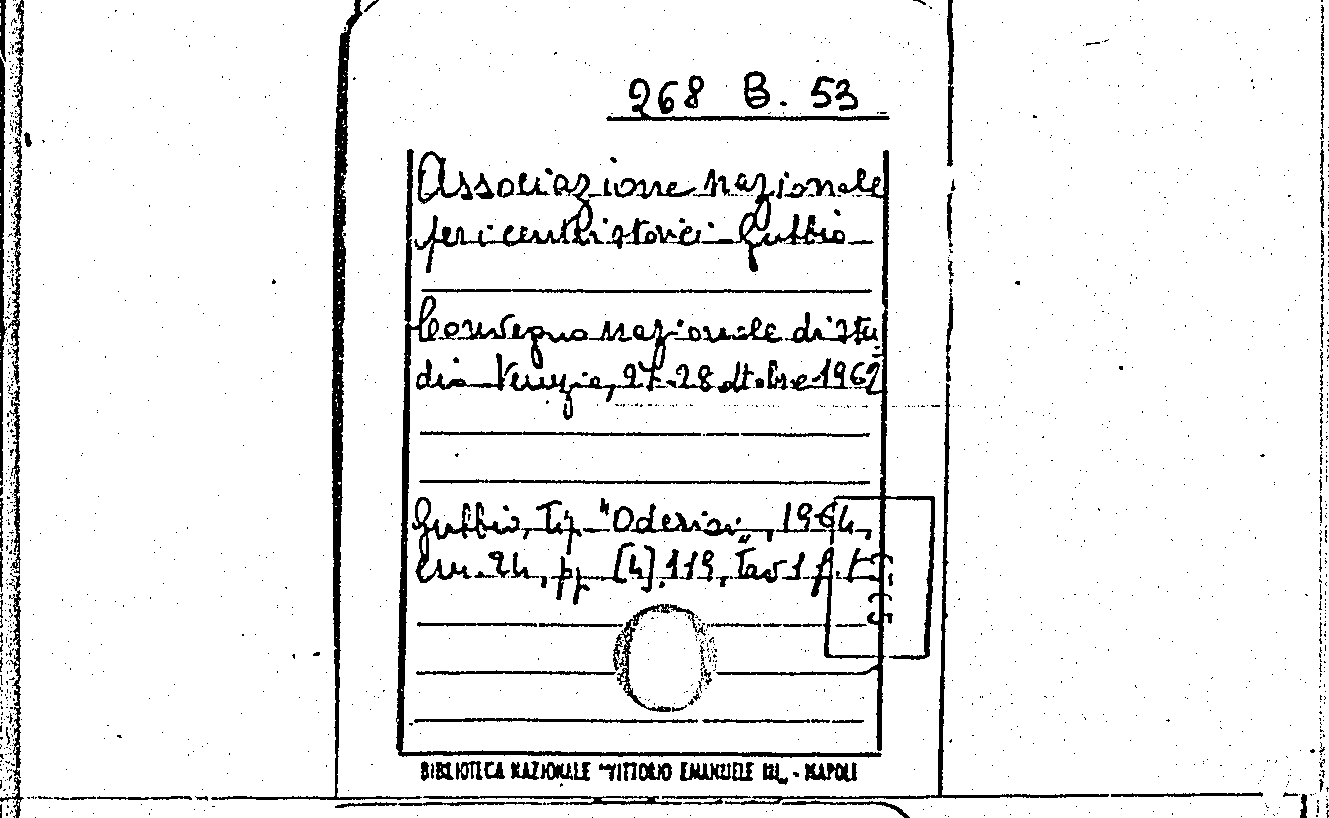 268 B. 53
Associazione nazionale
per i centri storici - Gubbio
Convegno nazionale di stu
dio Venezia, 27-28 ottobre 1962
Gubbio, Tip. "Oderisi", 1964,
cm. 24, pp. [4], 119, Tav 1 f. t
BIBLIOTECA NAZIONALE "VITTORIO EMANUELE III" - NAPOLI